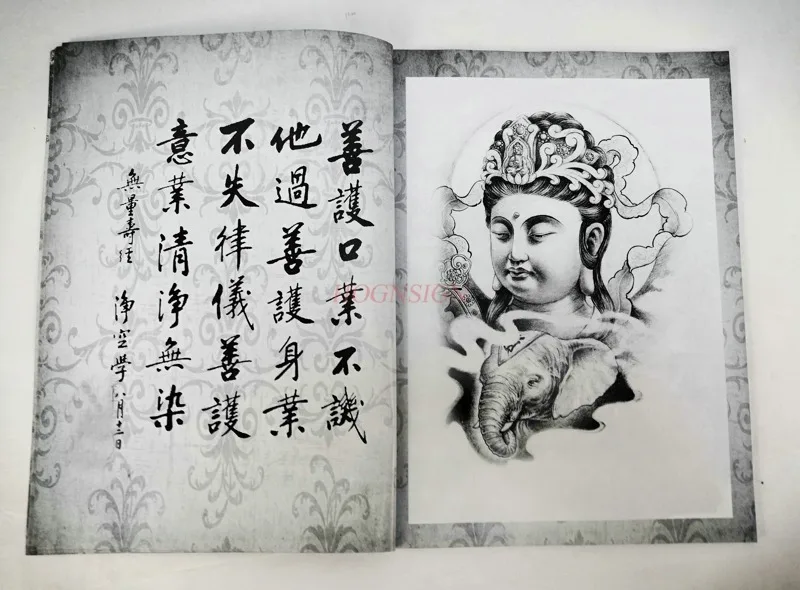 善護口業不譏
他過善護身業
不失律儀善護
意業清淨無染
無量壽經 淨空學 八月十二日